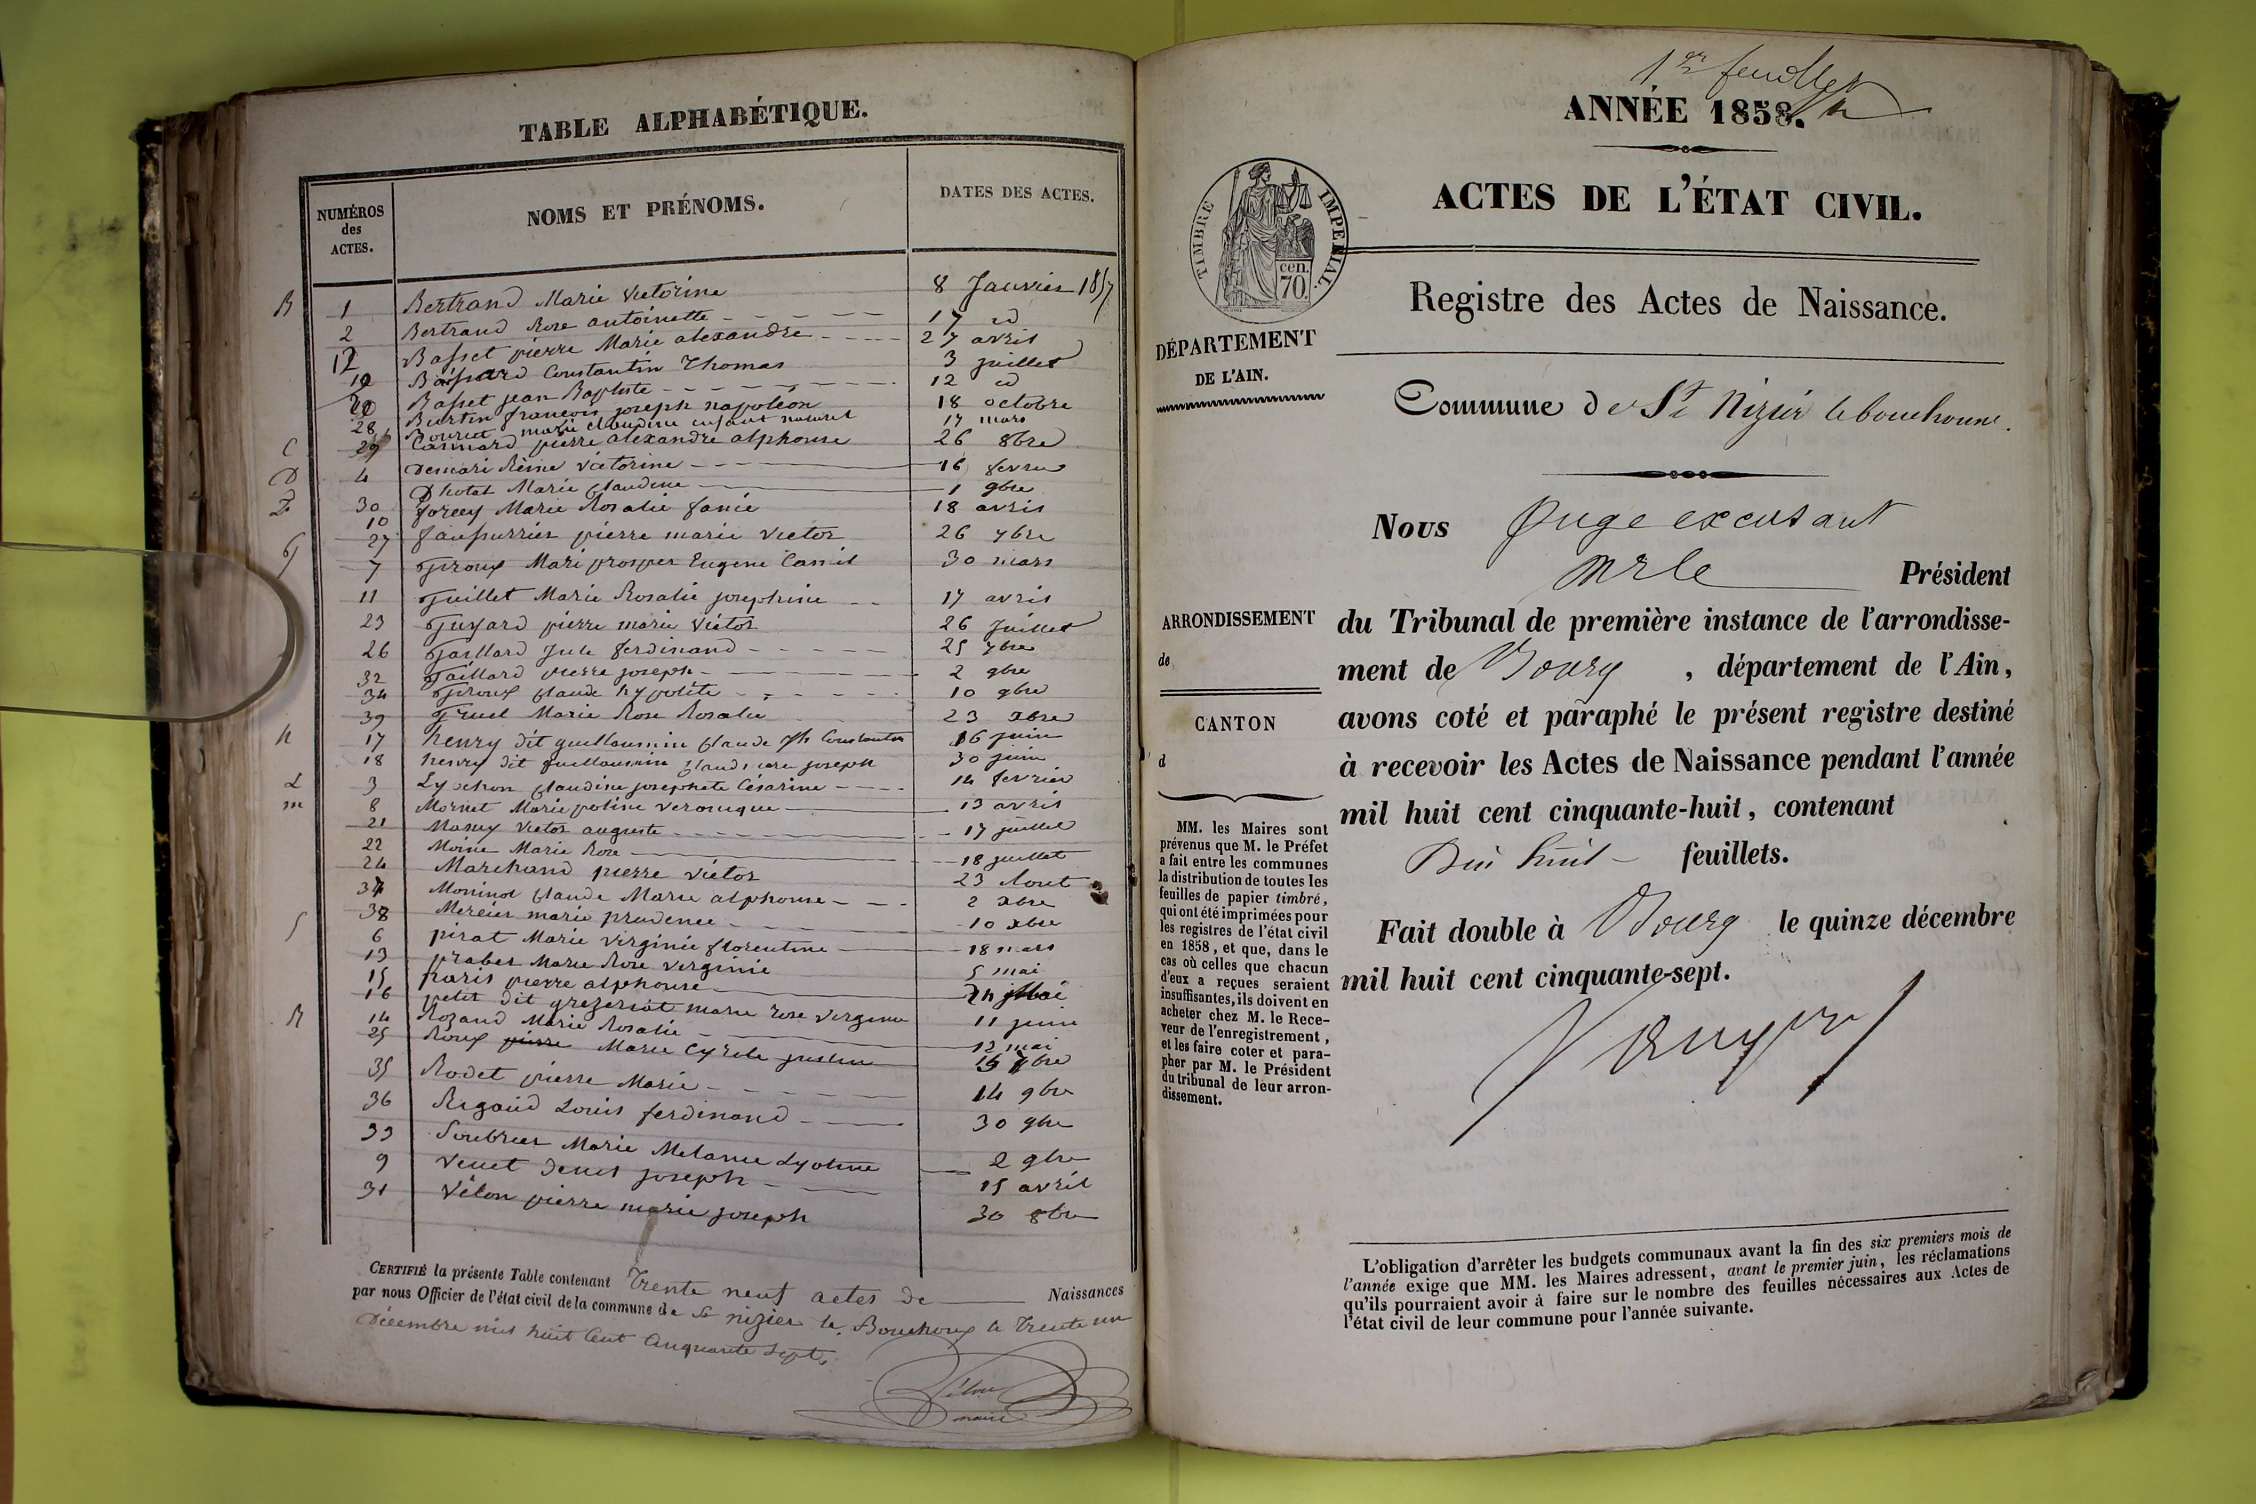 TABLE ALPHABÉTIQUE.
NUMÉROS des ACTES. NOMS ET PRÉNOMS. DATES DES ACTES.
B 1 Bertrand Marie Victorine 8 Janvier 1857
2 Bertrand Rose antoinette 17 id
12 Basset pierre Marie alexandre 27 avril
19 Constantin Thomas 3 juillet
20 Basset jean Baptiste 12 id
28 Burtin françois joseph napoléon 18 octobre
marie claudine enfant naturel 17 mars
C 29 pierre alexandre alphonse 26 8bre
D 4 Demiari Reine victorine 16 fevrier
30 Dhotal Marie Claudine 1 9bre
F 10 forey Marie Rosalie fanie 18 avril
27 faussurrier pierre marie victor 26 7bre
G 7 Giroux Mari prosper Eugene Camil 30 mars
11 Guillet Marie Rosalie josephine 17 avril
23 Guyard pierre marie Victor 26 Juillet
26 Gaillard Jule ferdinand 25 7bre
32 Gaillard pierre joseph 2 9bre
34 Giroux Claude hypolite 10 9bre
39 Gruel Marie Rose Rosalie 23 xbre
h 17 henry dit guillaumin Claude Jh Constantin 16 juin
18 henry dit guillaumin joseph 30 juin
L 3 Lyochon Claudine josephete Césarine 14 fevrier
m 8 Mornet Marie poline veronique 13 avril
21 Mamy Victor auguste 17 juillet
22 Moine Marie Rose 18 juillet
24 Marchand pierre victor 23 Aout
37 Moninot Claude Marie alphonse 2 xbre
38 Mercier marie prudence 10 xbre
6 pirat Marie virginie florentine 18 mars
13 prabel Marie Rose virginie 5 mai
15 paris pierre alphonse 24 Mai
16 petit dit grezeriat marie rose virginie 11 juin
R 14 Rozand Marie Rosalie 12 mai
25 Roux pierre Marie Cyrile justin 15 7bre
35 Rodet pierre Marie 14 9bre
36 Rigaud Louis ferdinand 30 9bre
33 Soubrier Marie Melanie Lyotine 2 9bre
9 Venet Denis joseph 15 avril
31 Vélon pierre marie joseph 30 8bre
CERTIFIÉ la présente Table contenant Trente neuf actes de Naissances
par nous Officier de l'état civil de la commune de St nizier le Bouchoux le Trente un
Décembre mil huit Cent Cinquante Sept.
Vélon
maire
1er feuillet
ANNÉE 1858.
ACTES DE L'ÉTAT CIVIL.
TIMBRE IMPERIAL.
cen.
70.
Registre des Actes de Naissance.
DÉPARTEMENT
DE L'AIN.
Commune de St Nizier lebouchoux.
Nous Juge excusant
Mr le Président
du Tribunal de première instance de l'arrondisse-
ment de Bourg, département de l'Ain,
avons coté et paraphé le présent registre destiné
à recevoir les Actes de Naissance pendant l'année
mil huit cent cinquante-huit, contenant
Dix huit feuillets.
Fait double à Bourg le quinze décembre
mil huit cent cinquante-sept.
ARRONDISSEMENT
de
CANTON
d
MM. les Maires sont
prévenus que M. le Préfet
a fait entre les communes
la distribution de toutes les
feuilles de papier timbré,
qui ont été imprimées pour
les registres de l'état civil
en 1858, et que, dans le
cas où celles que chacun
d'eux a reçues seraient
insuffisantes, ils doivent en
acheter chez M. le Rece-
veur de l'enregistrement,
et les faire coter et para-
pher par M. le Président
du tribunal de leur arron-
dissement.
L'obligation d'arrêter les budgets communaux avant la fin des six premiers mois de
l'année exige que MM. les Maires adressent, avant le premier juin, les réclamations
qu'ils pourraient avoir à faire sur le nombre des feuilles nécessaires aux Actes de
l'état civil de leur commune pour l'année suivante.